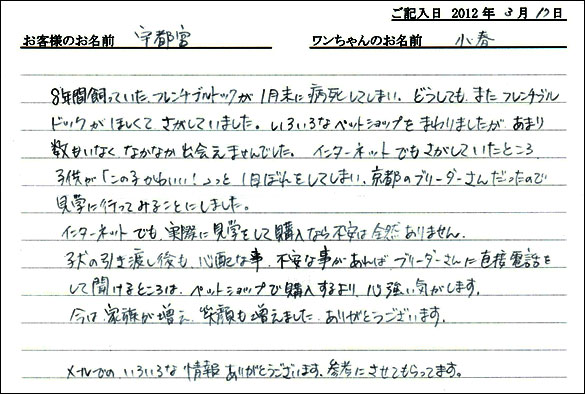 ご記入日 2012 年 3 月 17 日
お客様のお名前 宇都宮 ワンちゃんのお名前 小春
8年間飼っていた、フレンチブルドックが 1月末に病死してしまい、どうしても、またフレンチブル
ドックがほしくて、さがしていました。いろいろなペットショップをまわりましたが、あまり
数もいなく なかなか出会えませんでした。インターネットでもさがしていたところ
子供が「この子かわいい!」っと 1目ぼれをしてしまい、京都のブリーダーさんだったので
見学に行ってみることにしました。
インターネットでも、実際に見学をして購入なら不安は全然ありません。
子犬の引き渡し後も、心配な事、不安な事があれば ブリーダーさんに直接電話を
して聞けるところは、ペットショップで購入するより、心強い気がします。
今は、家族が増え、笑顔も増えました。ありがとうございます。
メールでの いろいろな 情報 ありがとうございます、参考にさせてもらってます。